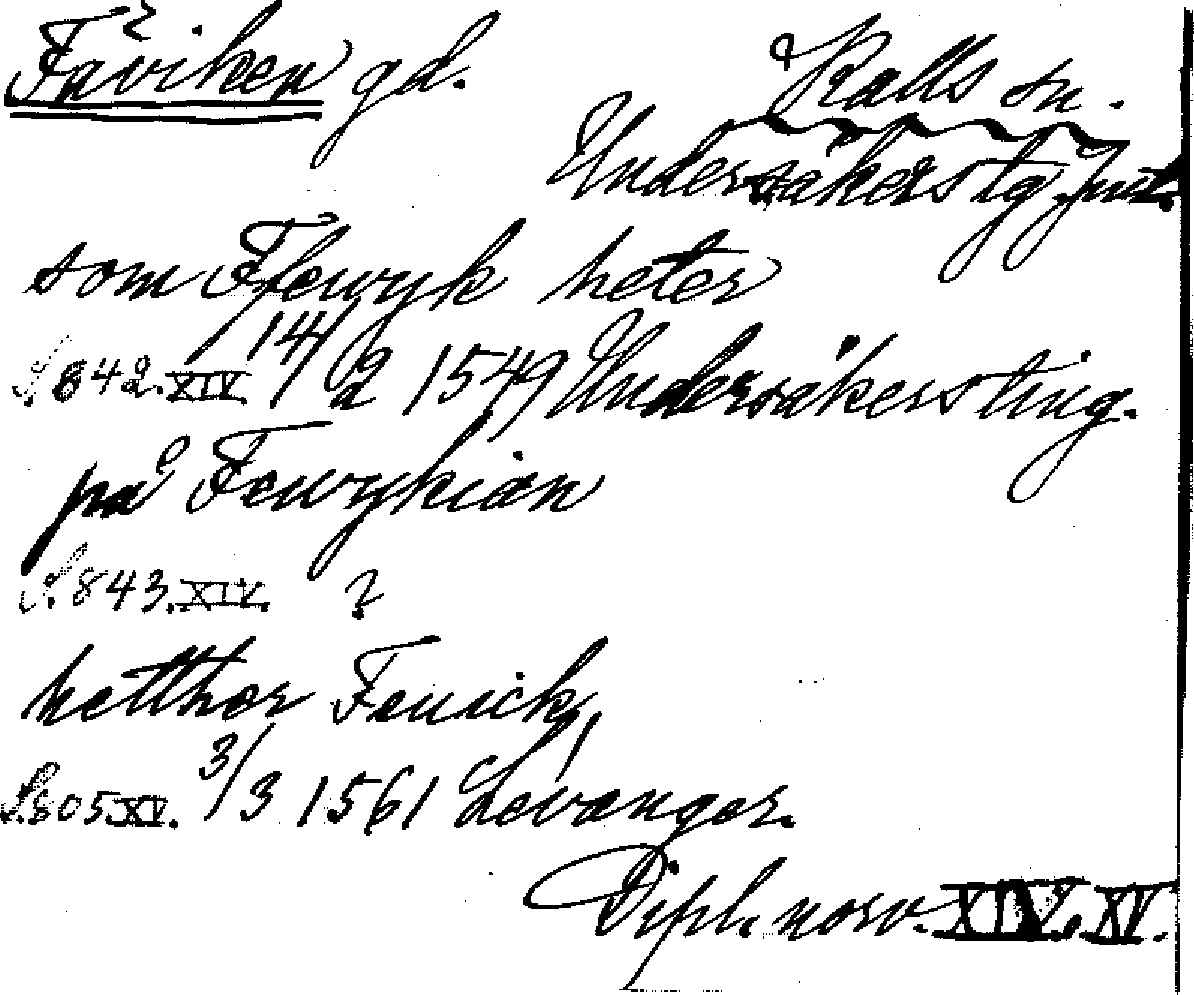 Fäviken gd.
Kalls sn.
Undersåkers tg. Jmt.
som Ffewyk heter
S. 842. XIV. 14/2 1549 Undersåkers ting.
på Fewykian
S. 843. XIV. ?
hetther Feuick
S. 805 XV. 3/3 1561 Levanger.
Dipl. norv. XIV, XV.